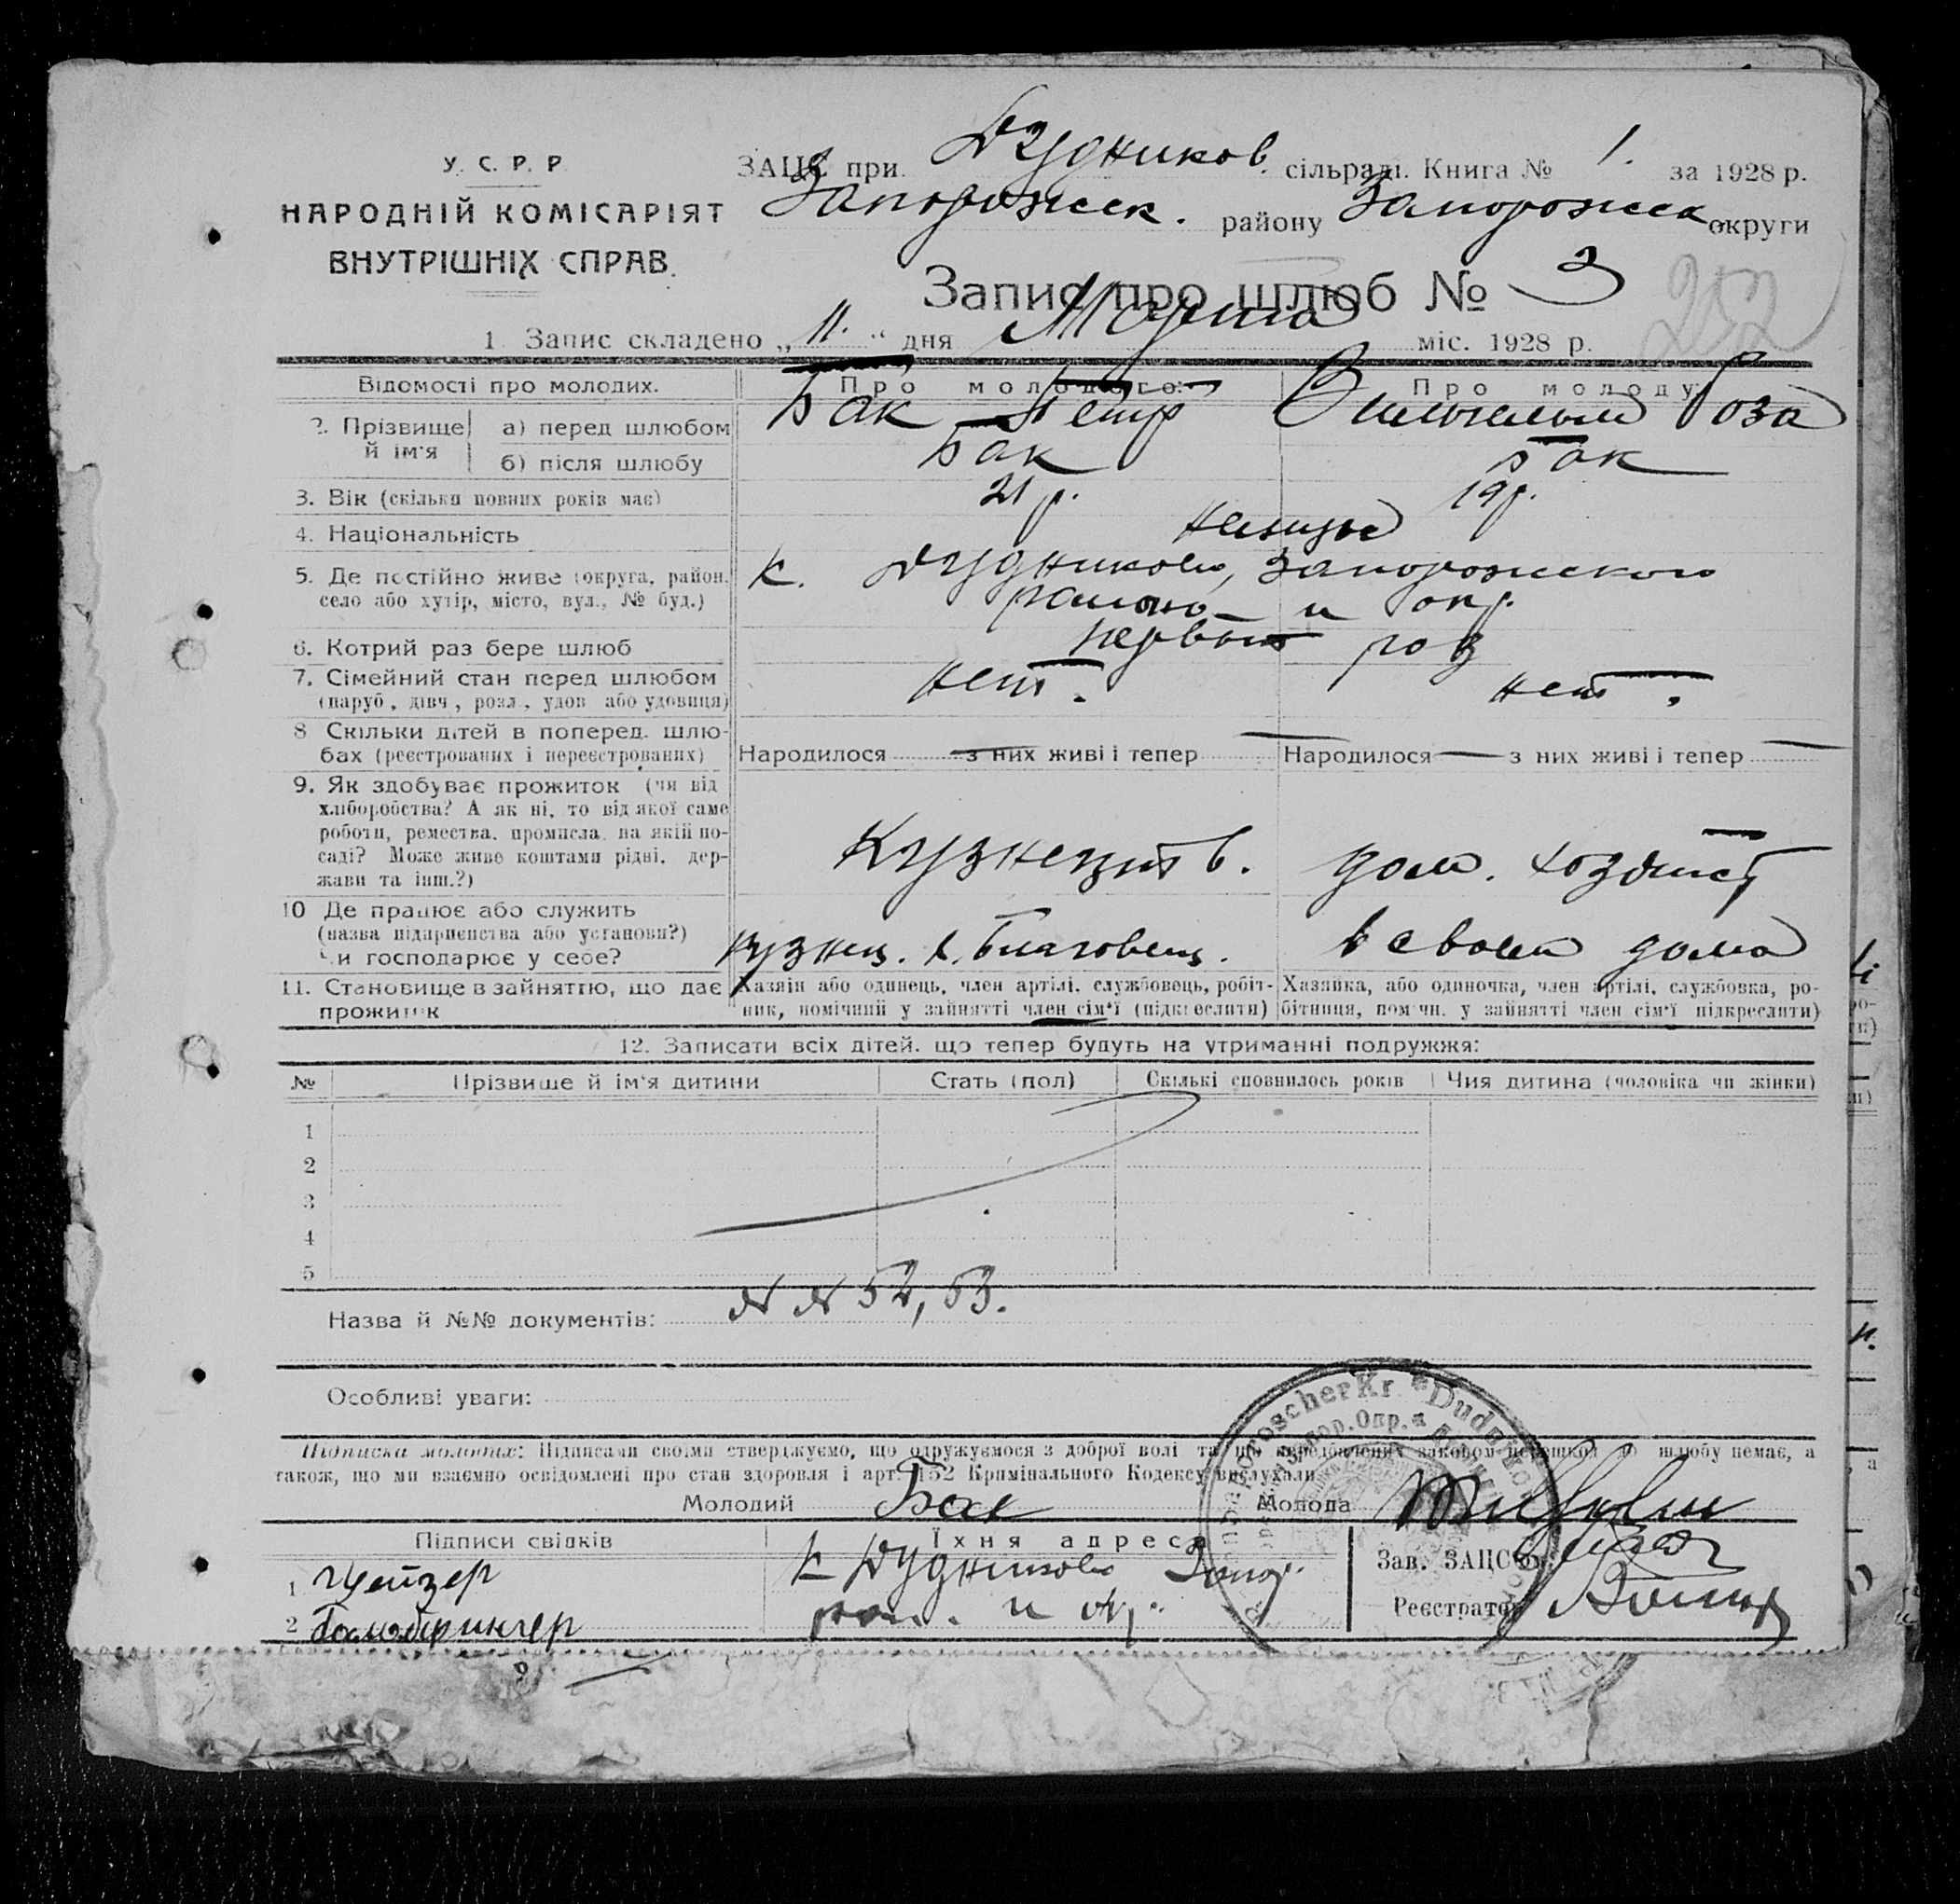 У. С. Р. Р.
НАРОДНІЙ КОМІСАРІЯТ
ВНУТРІШНІХ СПРАВ.
ЗАЦС при Дудников. сільраді. Книга № 1. за 1928 р.
Запорожск. району Запорожск округи
Запис про шлюб № 3
252
1. Запис складено „ 11. “ дня Марта міс. 1928 р.
Відомості про молодих. Про молодого: Про молоду:
2. Прізвище й ім'я а) перед шлюбом Бак Петр Вильгельм Роза
б) після шлюбу Бак Бак
3. Вік (скільки повних років має) 21 р. 19 р.
4. Національність немцы
5. Де постійно живе (округа, район, к. Дудниково, Запорожского
село або хутір, місто, вул., № буд.) района и окр.
6. Котрий раз бере шлюб первый раз
7. Сімейний стан перед шлюбом нет. нет.
(паруб., дівч., розл., удов. або удовиця)
8. Скільки дітей в поперед. шлю-
бах (реєстрованих і нереєстрованих) Народилося — з них живі і тепер — Народилося — з них живі і тепер —
9. Як здобуває прожиток (чи від
хліборобства? А як ні, то від якої саме
роботи, ремества, промисла, на якій по-
саді? Може живе коштами рідні, дер-
жави та інш.?)
Кузнец дом. хозяйст
10. Де працює або служить
(назва підприємства або установи?)
Чи господарює у себе?
кузнец. к. Благовещ. в своем дома
11. Становище в зайняттю, що дає Хазяїн або одинець, член артілі, службовець, робіт- Хазяйка, або одиночка, член артілі, службовка, ро-
прожиток ник, помічний у зайнятті член сім'ї (підкреслити) бітниця, помічн. у зайнятті член сім'ї підкреслити)
12. Записати всіх дітей, що тепер будуть на утриманні подружжя:
№ Прізвище й ім'я дитини Стать (пол) Скількі сповнилось років Чия дитина (чоловіка чи жінки)
1
2
3
4
5
Назва й №№ документів: №№ 52, 53.
Особливі уваги:
Підписка молодих: Підписами своїми стверджуємо, що одружуємося з доброї волі та що передбачених законом перешкод до шлюбу немає, а
також, що ми взаємно освідомлені про стан здоровля і арт. 152 Кримінального Кодексу вислухали
Молодий Бак Молода
Підписи свідків Їхня адреса
1 Цейзер к Дудниково Запор. Зав. ЗАЦС'ом
2 рай. и окр. Реєстратор